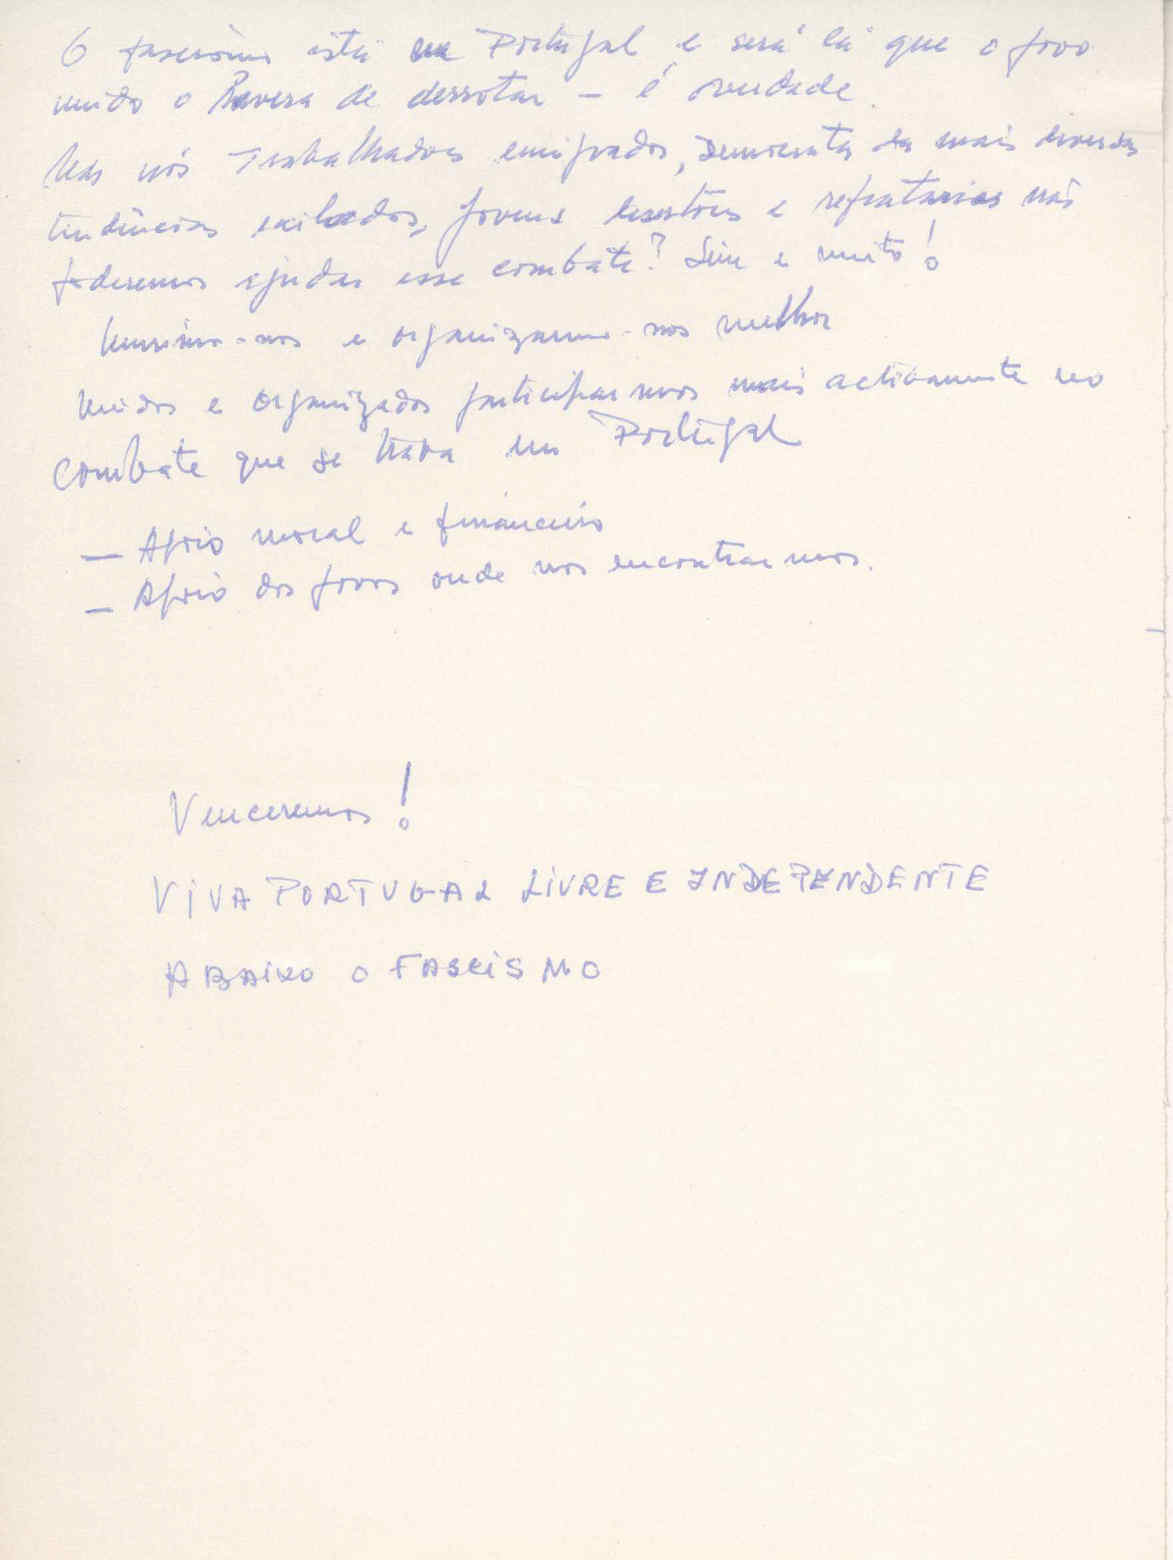 O fascismo está em Portugal e será lá que o povo
unido o haverá de derrotar - é verdade.
Mas nós Trabalhadores emigrados, Democratas das mais diversas
tendências exilados, jovens desertores e refractarios não
poderemos ajudar esse combate? Sim e muito!
Unirmo-nos e organizarmo-nos melhor
Unidos e organizados participarmos mais activamente no
combate que se trava em Portugal
- Apoio moral e financeiro
- Apoio dos povos onde nos encontrarmos.
Venceremos!
VIVA PORTUGAL LIVRE E INDEPENDENTE
ABAIXO O FASCISMO